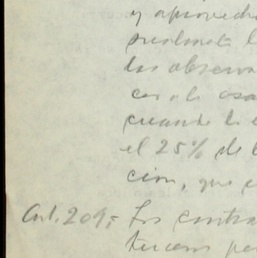 y aprovech
prealmente l
las observa
cuando l
el 25% de l
cion, que
Art. 209,- Los contra
terceros pa